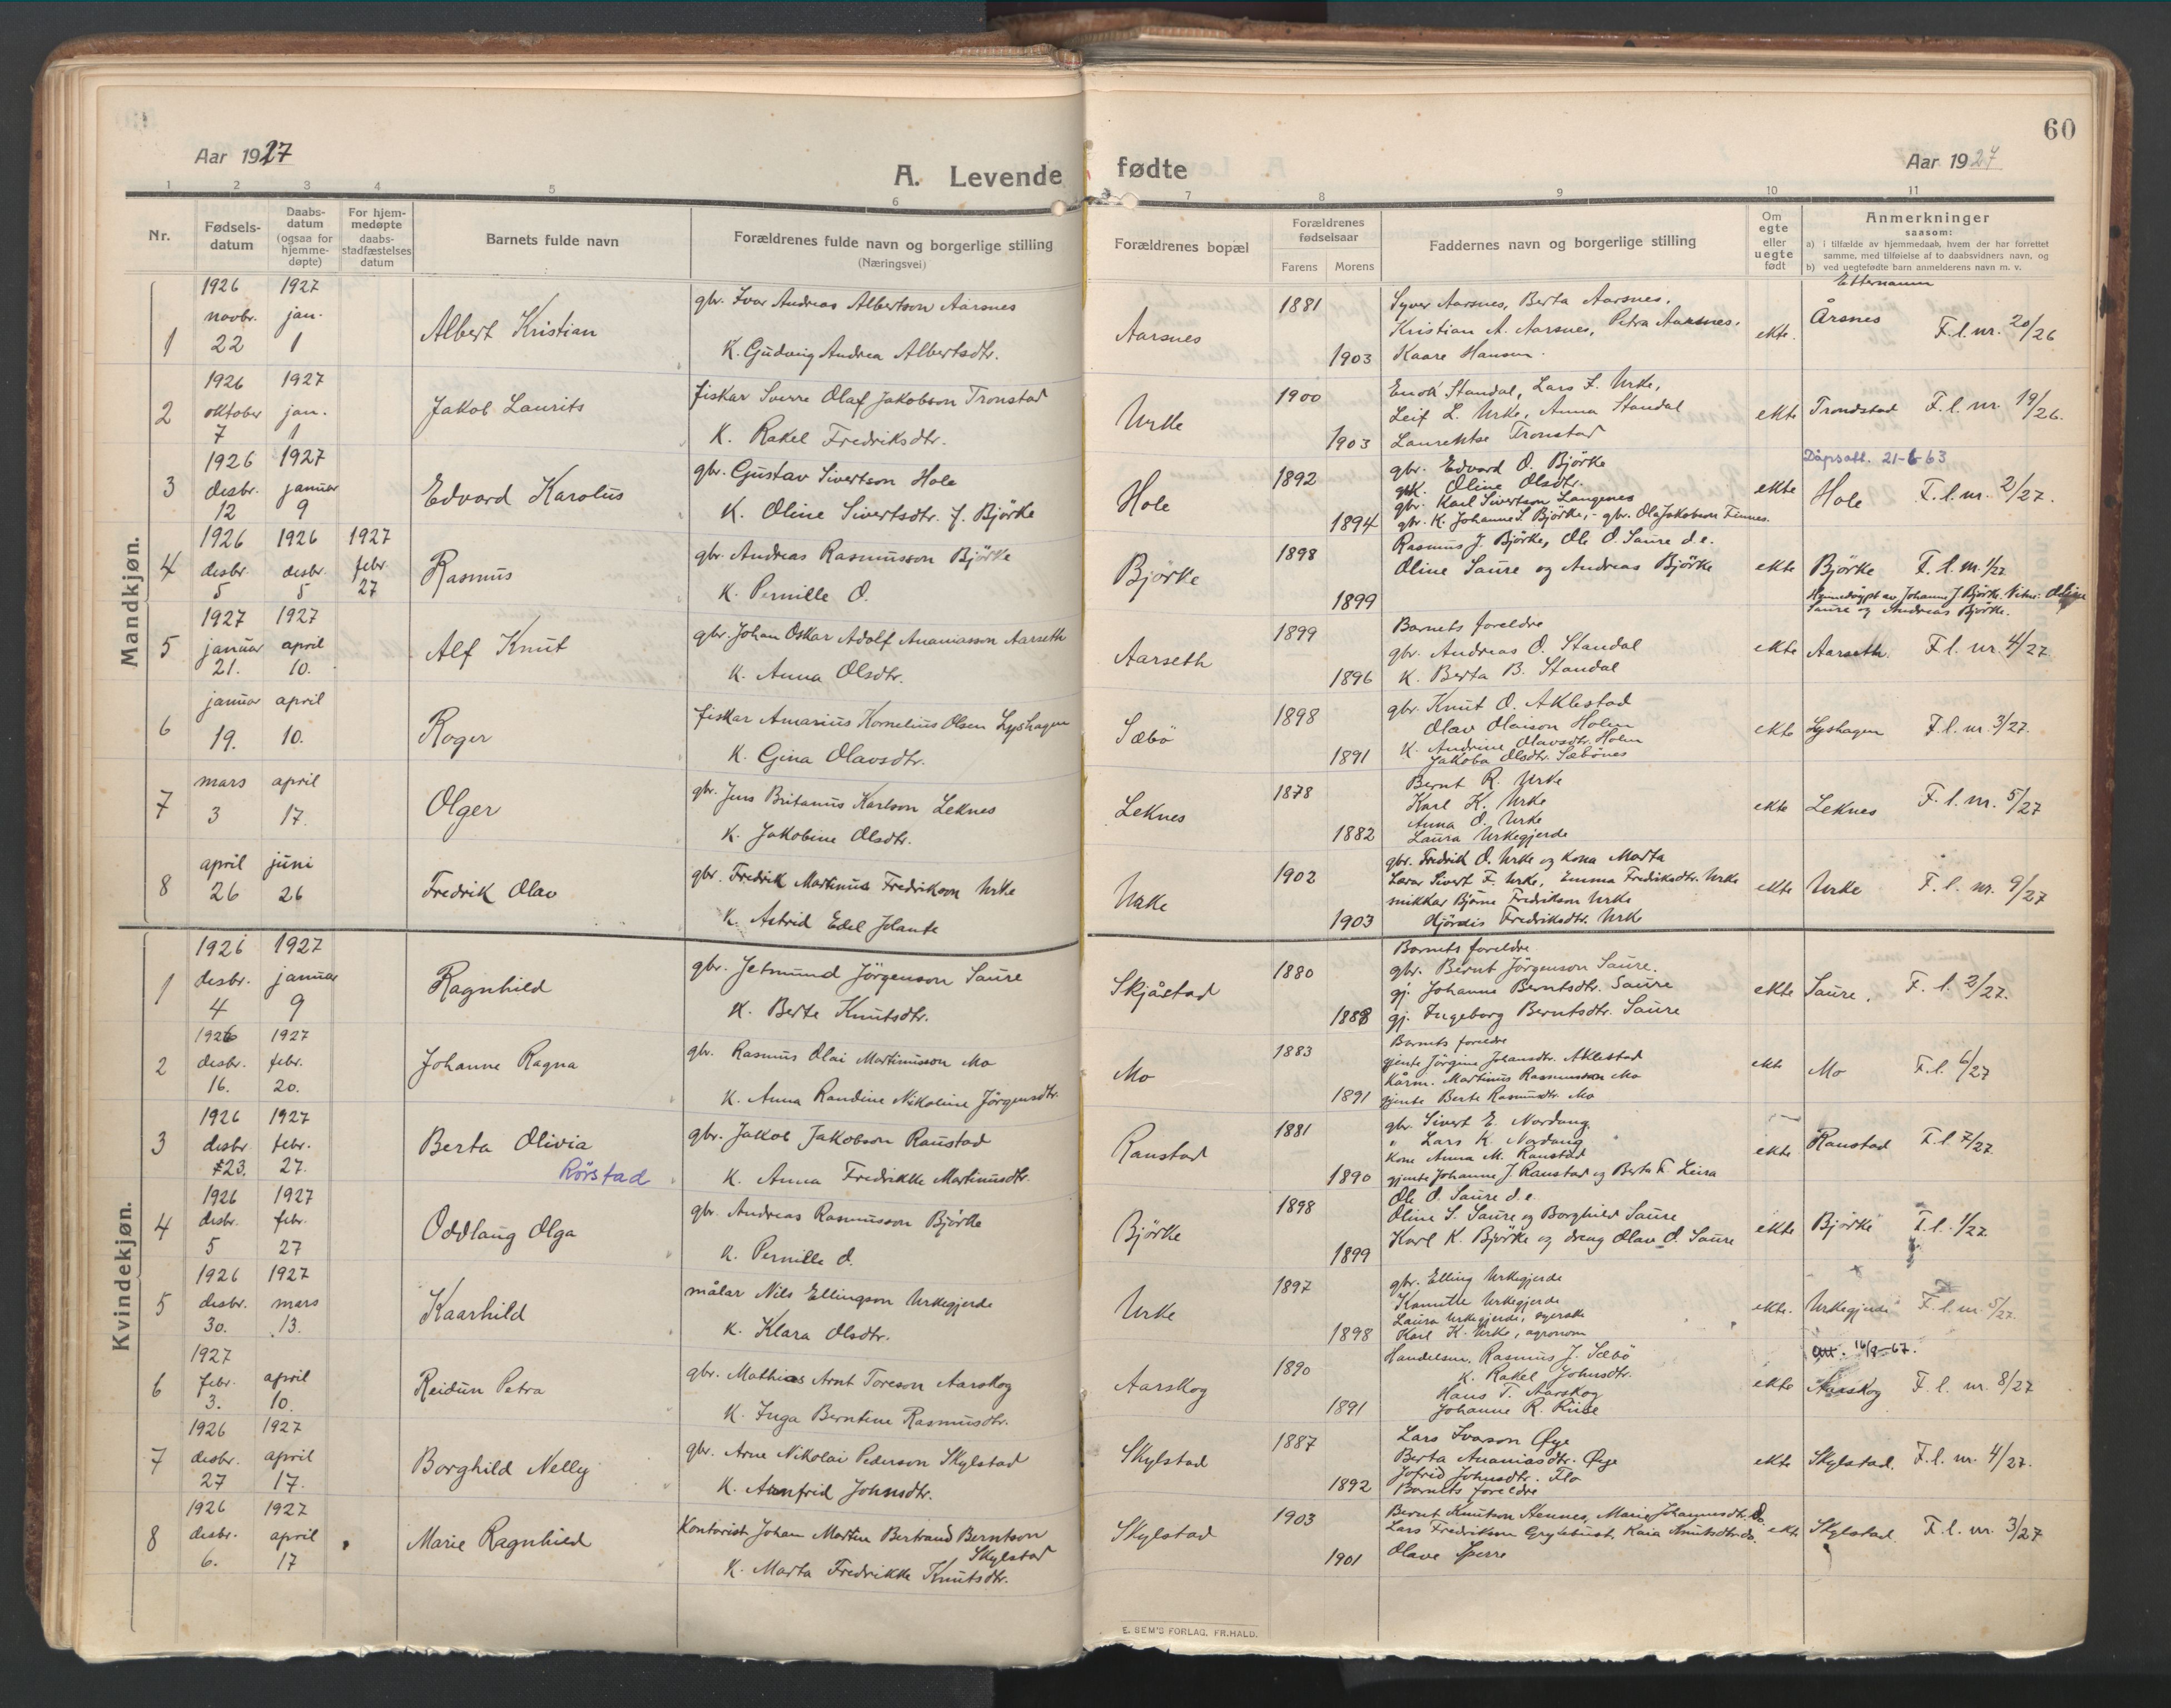 60
Aar 1927
A. Levende fødte
Aar 1927
1 2 3 4 5 6 7 8 9 10 11
Nr.
Fødsels-datum
Daabs-datum (ogsaa for hjemme-døpte)
For hjem-medøpte daabs-stadfæstelses datum
Barnets fulde navn
Forældrenes fulde navn og borgerlige stilling
(Næringsvei)
Forældrenes bopæl
Forældrenes fødselsaar
Farens Morens
Faddernes navn og borgerlige stilling
Om egte eller uegte født
Anmerkninger
saasom:
a) i tilfælde av hjemmedaab, hvem der har forrettet
samme, med tilføielse af to daabsvidners navn, og
b) ved uegtefødte barn anmelderens navn m. v.
Etternamn
Mandkjøn.
1 1926 novbr. 22 1927 jan. 1 Albert Kristian
gbr. Ivar Andreas Albertson Aarsnes
K. Gjudvig Andrea Albertsdtr.
Aarsnes 1881 1903
Syver Aarsnes, Berta Aarsnes,
Kristian A. Aarsnes, Petra Aarsnes,
Kaare Hansen.
ekte. Årsnes F. l. nr. 20/26
2 1926 oktober 7 1927 jan. 1 Jakob Laurits
fiskar Sverre Olaf Jakobson Tronstad
K. Rakel Fredriksdtr.
Urke 1900 1903
Enok Standal, Lars F. Urke,
Leif L. Urke, Anna Standal
Laurentse Tronstad
ekte Trondstad F. l. nr. 19/26.
3 1926 desbr. 12 1927 januar 9 Edvard Karolus
gbr. Gustav Sivertson Hole
K. Oline Sivertsdtr. f. Björke
Hole 1892 1894
gbr. Edvard O. Björke
K. Oline Olsdtr.
gbr. Karl Sivertson Langenes
gbr. K. Johanne S. Björke, - gbr. Ola Jakobson Finnes.
ekte Dåpsatt. 21-6-63
Hole F. l. nr. 2/27.
4 1926 desbr. 5 1926 desbr. 5 1927 febr. 27 Rasmus
gbr. Andreas Rasmusson Björke
K. Pernille O.
Björke 1898 1899
Rasmus J. Björke, Ole O. Saure d.e.
Oline Saure og Andreas Björke
ekte Björke F. l. nr. 1/27
Heimedöypt av Johannes J. Björke. Vitne: Oline
Saure og Andreas Björke.
5 1927 januar 21. 1927 april 10. Alf Knut
gbr. Johan Oskar Adolf Ananiasson Aarseth
K. Anna Olsdtr.
Aarseth 1899 1896
Barnets foreldre
gbr. Andreas O. Standal
K. Berta B. Standal
ekte Aarseth. F. l. nr. 4/27
6 januar 19. april 10. Roger
fiskar Amarius Kornelius Olsen Lyshagen
K. Gina Olavsdtr.
Sæbö 1898 1891
gbr. Knut O. Aklestad
Olav Olaison Holen
K. Andrine Olavsdtr. Holen
Jakoba Olsdtr. Sæbönes
ekte Lyshagen F. l. nr. 3/27.
7 mars 3 april 17. Olger
gbr. Jens Britanus Karlson Leknes
K. Jakobine Olsdtr.
Leknes 1878 1882
Bernt R. Urke
Karl K. Urke
Anna O. Urke
Laura Urkegjerde
ekte Leknes F. l. nr. 5/27
8 april 26 juni 26 Fredrik Olav
gbr. Fredrik Martinus Fredrikson Urke
K. Astrid Edel Jolante
Urke 1902 1903
gbr. Fredrik O. Urke og kona Marta
Lærar Sivert F. Urke, Emma Fredriksdtr. Urke
snikkar Bjarne Fredrikson Urke
Hjördis Fredriksdtr. Urke
ekte Urke F. l. nr. 9/27
Kvindekjøn.
1 1926 desbr. 4 1927 januar 9 Ragnhild
gbr. Jetmund Jörgenson Saure
K. Berte Knutsdtr.
Skjåstad 1880 1888
Barnets foreldre
gbr. Bernt Jörgenson Saure.
gj. Johanne Berntsdtr. Saure
gj. Ingeborg Berntsdtr. Saure
ekte Saure. F. l. 2/27.
2 1926 desbr. 16. 1927 febr. 20. Johanne Ragna
gbr. Rasmus Olai Martinusson Mo
K. Anna Randine Nikoline Jörgensdtr.
Mo 1883 1891
Barnets foreldre
gjente Jörgine Johansdtr. Aklestad
Kårm. Martinus Rasmusson Mo
gjente Berte Rasmusdtr. Mo
ekte Mo F. l. 6/27
3 1926 desbr 23. 1927 febr. 27. Berta Olivia
Rörstad
gbr. Jakob Jakobson Raustad
K. Anna Fredrikke Martinusdtr.
Raustad 1881 1890
gbr. Sivert E. Nordang
" Lars K. Nordang
Kone Anna M. Raustad
gjente Johanne J. Raustad og Berta F. Leira
ekte Raustad F. l. 7/27
4 1926 desbr. 5 1927 febr. 27 Oddlaug Olga
gbr. Andreas Rasmusson Björke
K. Pernille O.
Björke 1898 1899
Ole O. Saure d.e.
Oline S. Saure og Borghild Saure
Karl K. Björke og dreng Olav O. Saure
ekte Björke F. l. 1/27
5 1926 desbr. 30. 1927 mars 13. Kaarhild
målar Nils Ellingson Urkegjerde
K. Klara Olsdtr.
Urke 1897 1898
gbr. Elling Urkegjerde
Kanutte Urkegjerde
Laura Urkegjerde, syerske
Karl K. Urke, agronom
ekte. Urkegjerde F. l. nr. 5/27
6 1927 febr. 3. april 10. Reidun Petra
gbr. Mathias Arnt Toreson Aarskog
K. Inga Berntine Rasmusdtr.
Aarskog 1890 1891
Handelsm. Rasmus J. Sæbö
K. Rakel Johnsdtr.
Hans T. Aarskog
Johanne R. Riise
ekte att. 16/8-67.
Aarskog F. l. nr. 8/27
7 1926 desbr. 27 1927 april 17. Borghild Nelly
gbr. Arne Nikolai Pederson Skylstad
K. Arnfrid Johnsdtr.
Skylstad 1887 1892
Lars Ivarson Øye
Berta Ananiasdtr. Øye
Jofrid Johnsdtr. Flo
Barnets foreldre
ekte Skylstad. F. l. nr. 4/27.
8 1926 desbr. 6. 1927 april 17 Marie Ragnhild
Kontorist Johan Martin Bertrand Berntson
Skylstad
K. Marta Fredrikke Knutsdtr.
Skylstad 1903 1901
Bernt Knutson Stennes, Marie Johannesdtr. do.
Lars Fredrikson Grytebust, Kaia Knutsdtr. do.
Olave Sperre
ekte Skylstad F. l. nr. 3/27
E. SEM'S FORLAG, FR.HALD.